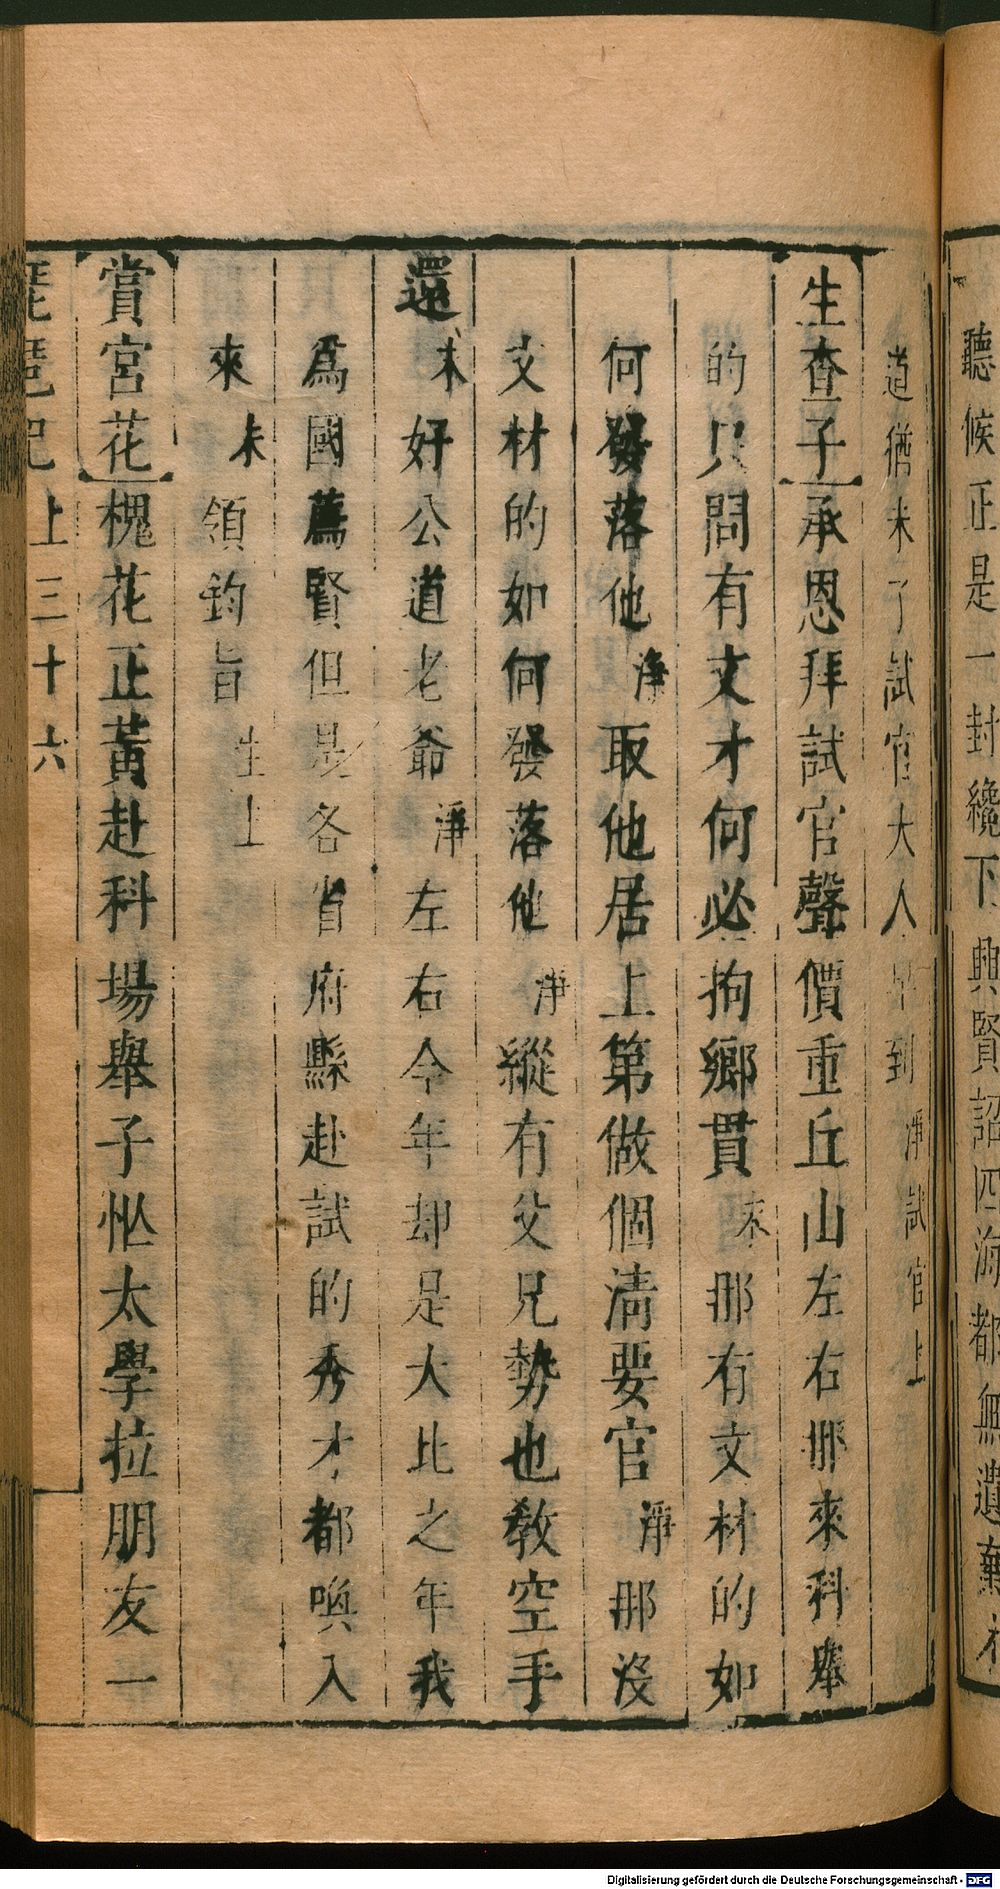 聽候正是一封纔下興賢詔四海都無遺棄
道猶未了試官大人早到淨試官上
生查子承恩拜試官聲價重丘山左右那來科舉
的只問有文才何必拘鄉貫末那有文材的如
何發落他淨取他居上第做個清要官淨那沒
文材的如何發落他淨縱有父兄勢也教空手
還末好公道老爺淨左右今年却是大比之年我
爲國薦賢但是各省府縣赴試的秀才都喚入
來末領鈞旨生上
賞宮花槐花正黃赴科場舉子忙太學拉朋友一
琵琶記上三十六
Digitalisierung gefördert durch die Deutsche Forschungsgemeinschaft - DFG